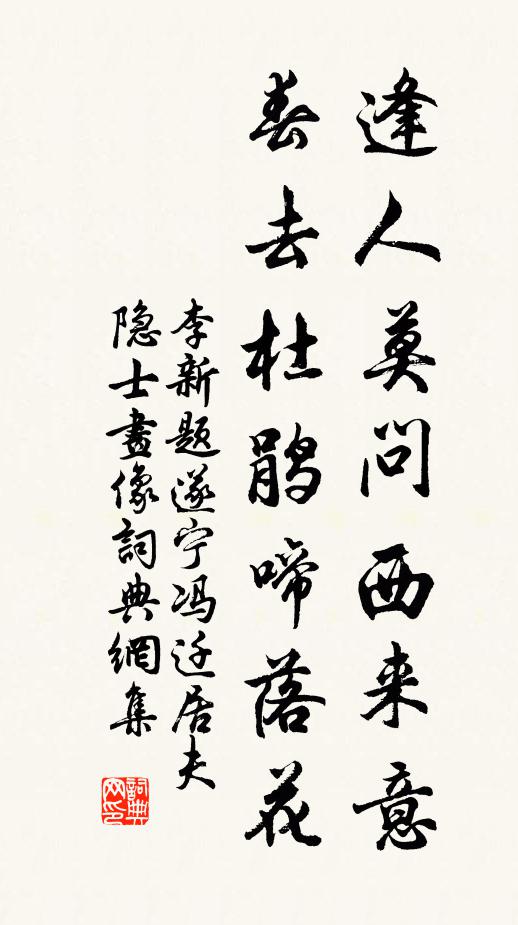 逢人莫问西来意
春去杜鹃啼落花
李新题遂宁冯迁居夫
隐士畫像詞典網集
詞典网印